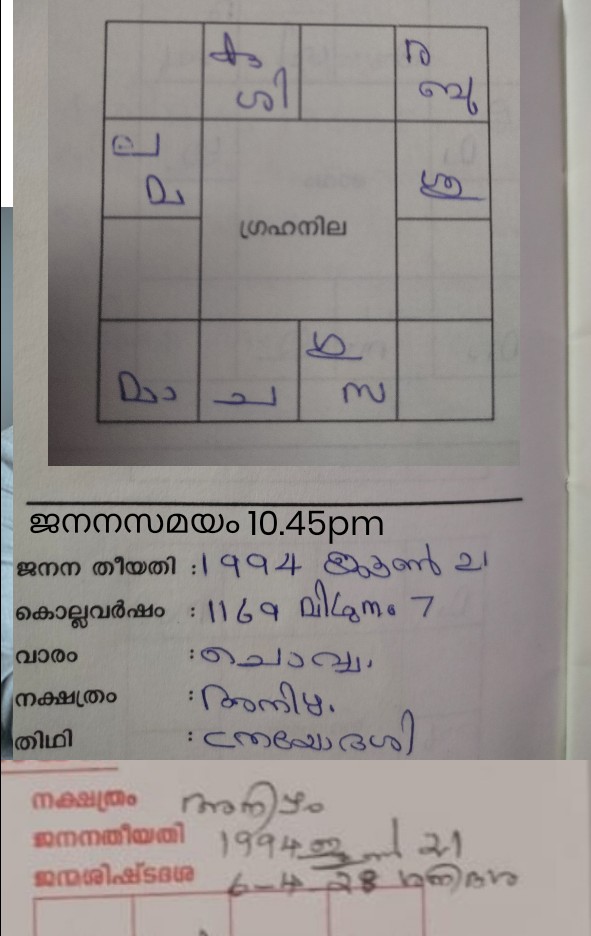 കു ര
ശി ബു
ല
മ ശു
ഗ്രഹനില
ഗു
മാ ച സ
ജനനസമയം 10.45pm
ജനന തീയതി : 1994 ജൂൺ 21
കൊല്ലവർഷം : 1169 മിഥുനം 7
വാരം : ചൊവ്വ.
നക്ഷത്രം : അനിഴം.
തിഥി : ത്രയോദശി
നക്ഷത്രം അനിഴം
ജനനതീയതി 1994 ജൂൺ 21
ജന്മശിഷ്ടദശ 6-4-28 ശനിദശ